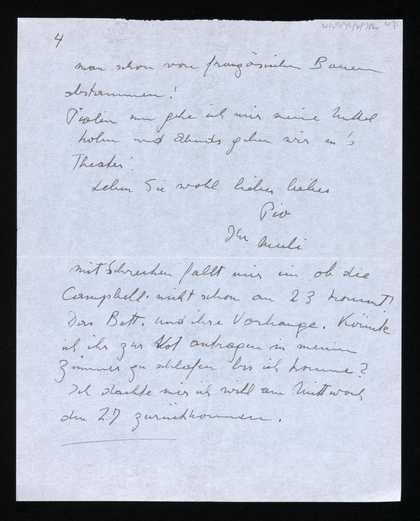 4
man schon von französischen Bauern
abstammen!
nun gehe ich mir meine Enkel
holen und Abends gehen wir in's
Theater.
Leben Sie wohl liebes liebes
Piv
Ihr
mit Schrecken fällt mir ein ob die
Campbell nicht schon am 23 kommt!
Das Bett. und ihre Vorhänge. Könnte
ich ihr zur Not antragen in meinem
Zimmer zu schlafen bis ich komme?
Ich dachte mir ich will am Mittwoch
den 27 zurückkommen.